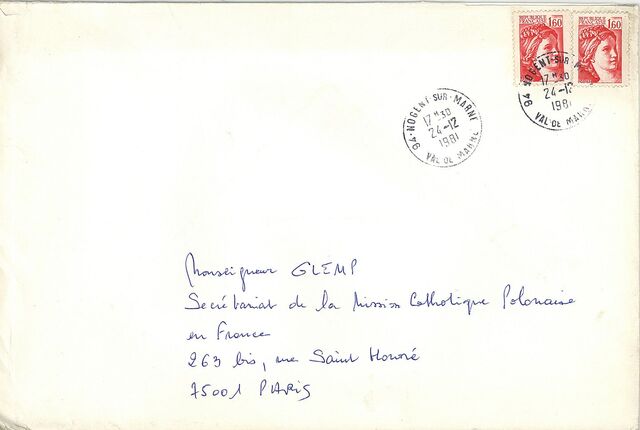 REPUBLIQUE FRANÇAISE 1,60
REPUBLIQUE FRANÇAISE 1,60
94-NOGENT-SUR-MARNE
17H30
24-12
1981
VAL DE MARNE
94 NOGENT-SUR-M
17H30
24-12
1981
VAL DE MARN
Monseigneur GLEMP
Secrétariat de la Mission Catholique Polonaise
en France
263 bis, rue Saint Honoré
75001 PARIS